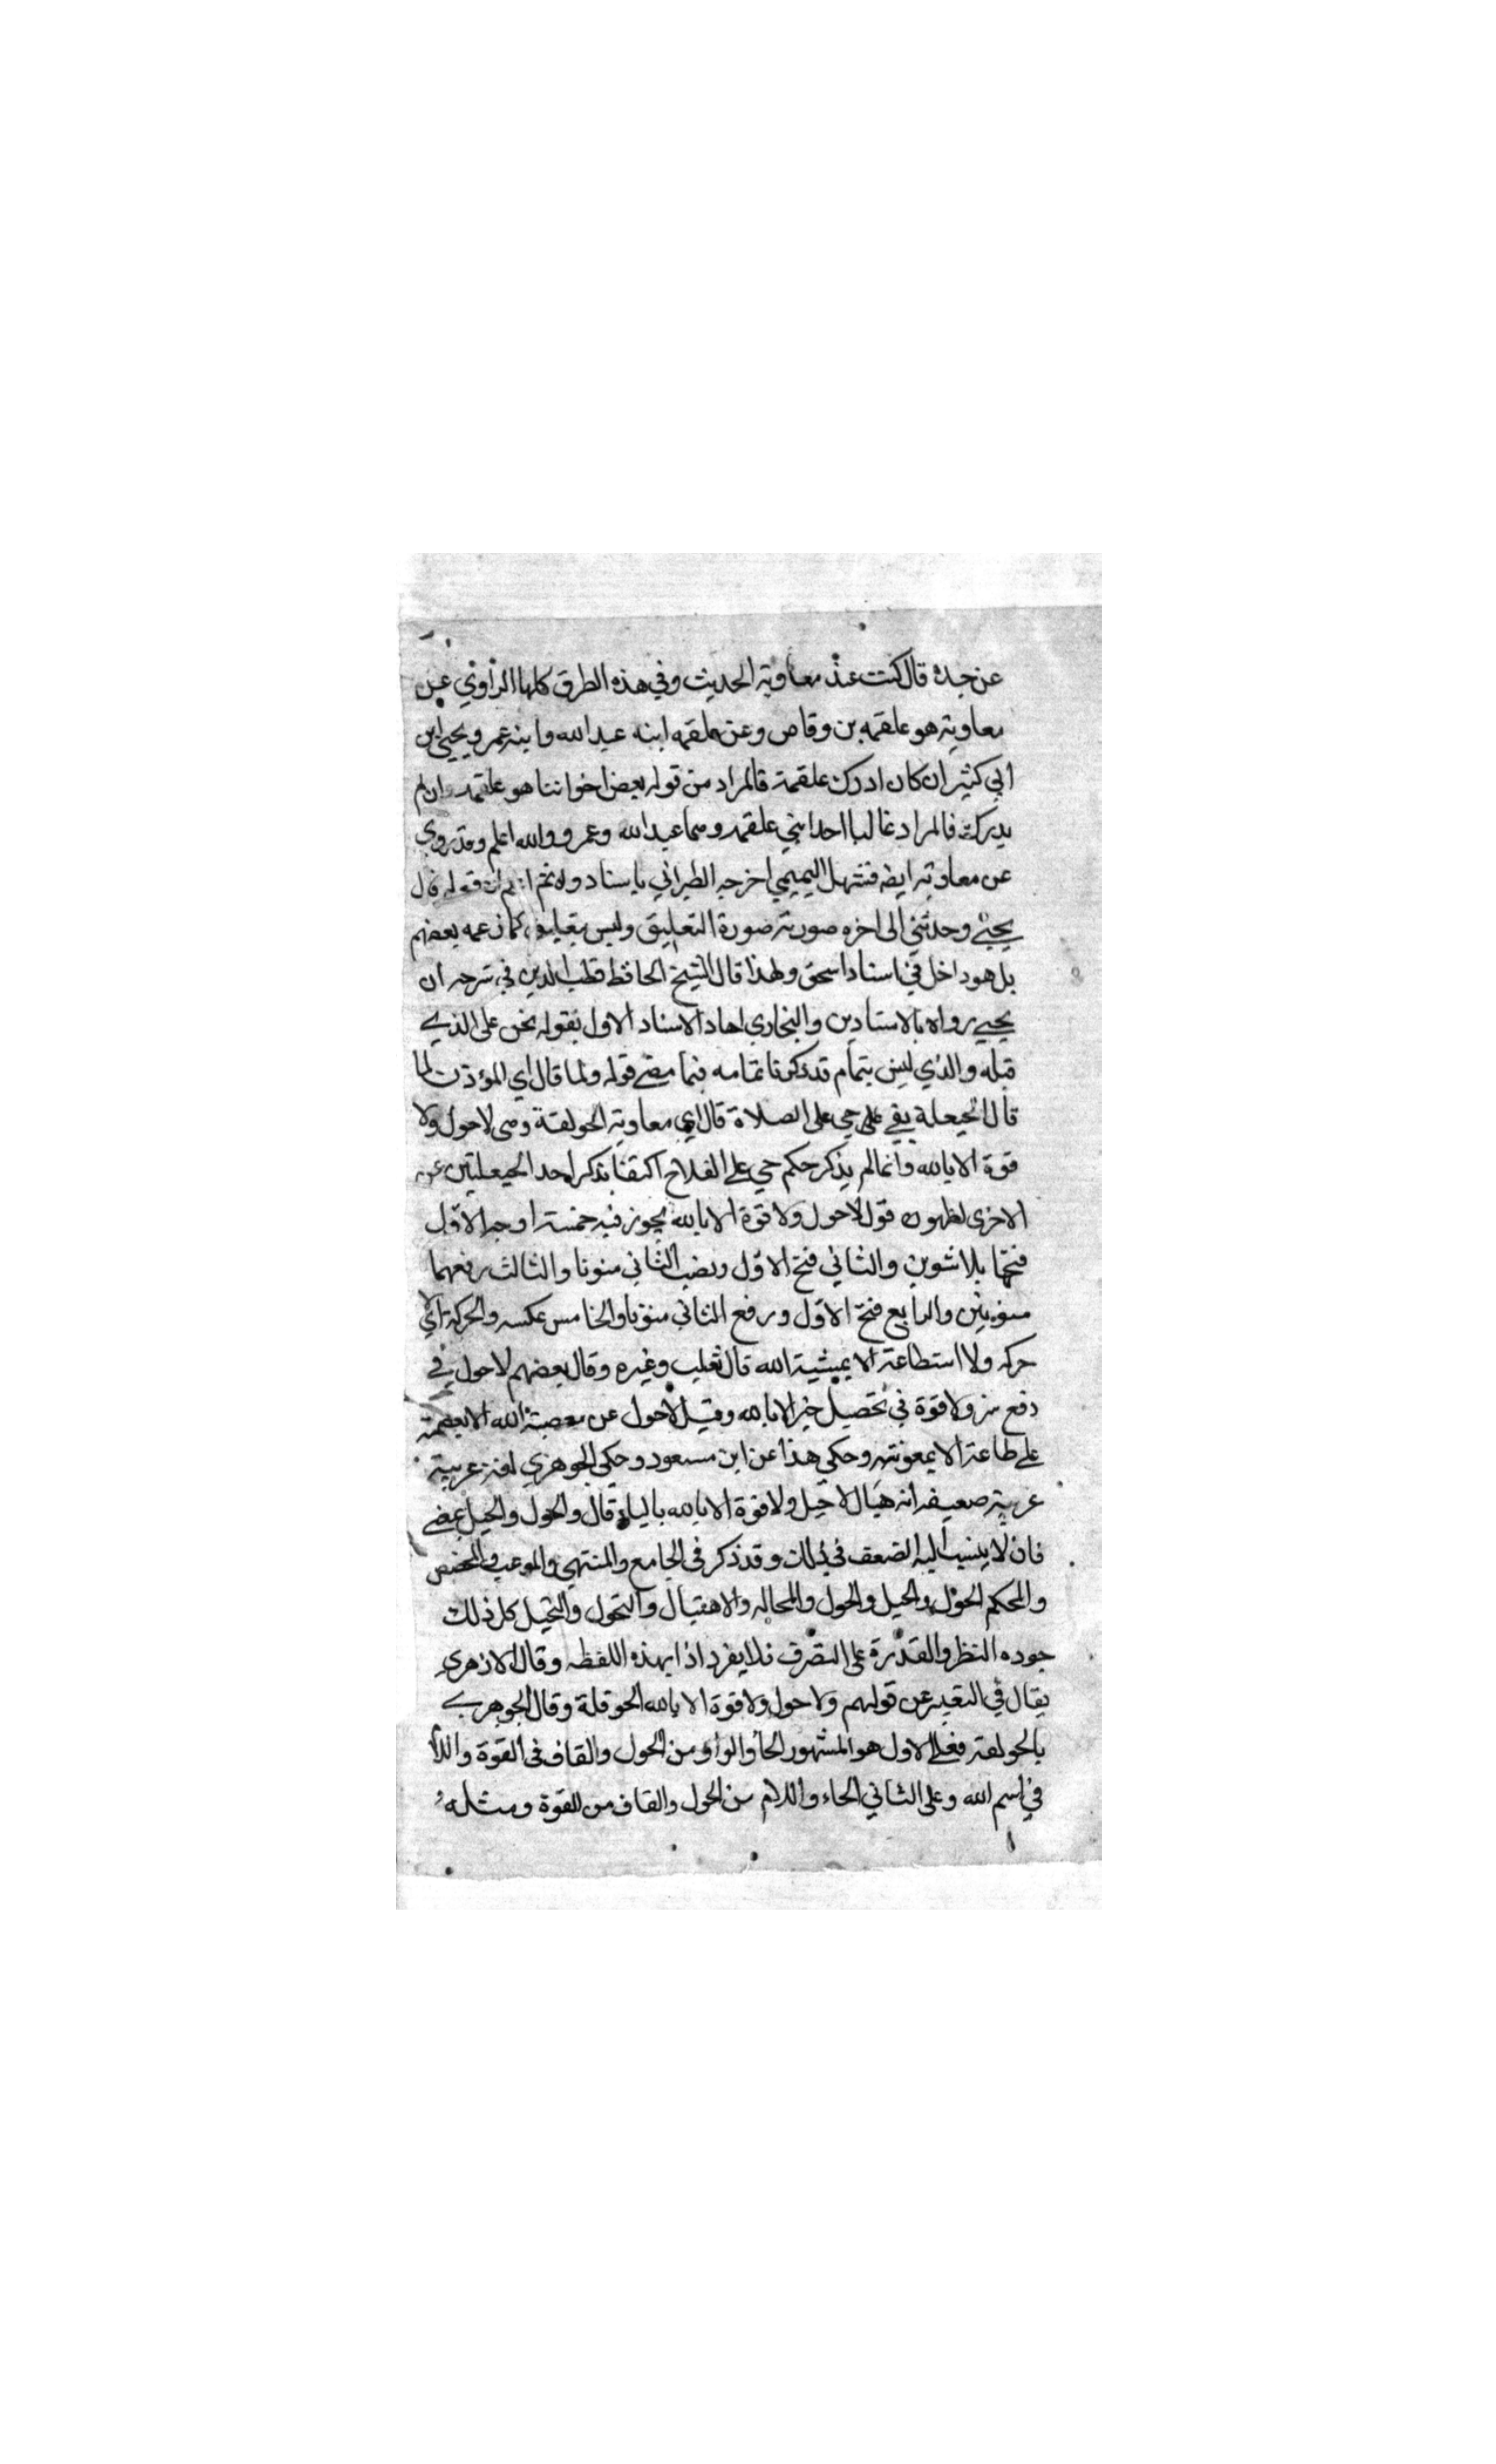 عن جده قال كنت عند معاوية الحديث وفي هذه الطرق كلها الراوي عن
معاوية هو علقمه بن وقاص وعن علقمه ابنه عبد الله وابنه عمر ويحيى ابن
ابي كثير ان كان ادرك علقمة فالمراد من قوله بعض اخواننا هو علقمه وان لم
يدركه فالمراد غالبا احد ابني علقمه وهما عبد الله وعمرو والله اعلم وقد روي
عن معاوية ايضه نهشل التميمي اخرجه الطبراني باسناد واه ثم ان قوله قال
يحيى وحدثني الى اخره صورته صورة التعليق وليس بتعليق كما زعمه بعضهم
بل هو داخل في اسناد اسحق ولهذا قال الشيخ الحافظ قطب الدين في شرحه ان
يحيى رواه بالاسنادين والبخاري احاد الاسناد الاول بقوله نحن على الذي
قبله والذي ليس بتمام قد ذكرنا تمامه فيما مضى قوله ولما قال اي المؤذن لما
قال الحيعلة يعني على حي على الصلاة قال اي معاوية الحولقة وهى لا حول ولا
قوة الا بالله وانما لم يذكر حكم حي على الفلاح اكتفا بذكر احد الحيعلتين عن
الاخرى لظهوره قوله لا حول ولا قوة الا بالله يجوز فيه خمسة اوجه الاول
فتحهما بلا تنوين والثاني فتح الاول ونصب الثاني منونا والثالث رفعهما
منونين والرابع فتح الاول ورفع الثاني منونا والخامس عكسه والحركة اي لا
حركه ولا استطاعة الا بمشية الله قال ثعلب وغيره وقال بعضهم لا حول في
دفع شر ولا قوة في تحصيل خير الا بالله وقيل لا حول عن معصية الله الا بعصمته
على طاعة الا بمعونته وحكى هذا عن ابن مسعود وحكى الجوهري لغة عربية
عربية ضعيفه انه يقال لا حيل ولا قوة الا بالله بالياء قال والحول والحيل بمعنى
فان لا ينسب اليه الضعف في ذلك وقد ذكر في الجامع والمنتهى والموعب والمخصص
والمحكم الحول والحيل والحول والمحاله والاحتيال والتحول والتحيل كل ذلك
جوده النظر والقدرة على التصرف فلا يفرد اذا بهذه اللفظه وقال الازهري
يقال في التعبير عن قولهم ولا حول ولا قوة الا بالله الحوقلة وقال الجوهري
بالحولقة فعلى الاول هو المشهور الحا والواو من الحول والقاف في القوة واللام
في اسم الله وعلى الثاني الحاء واللام من الحول والقاف من القوة ومثله